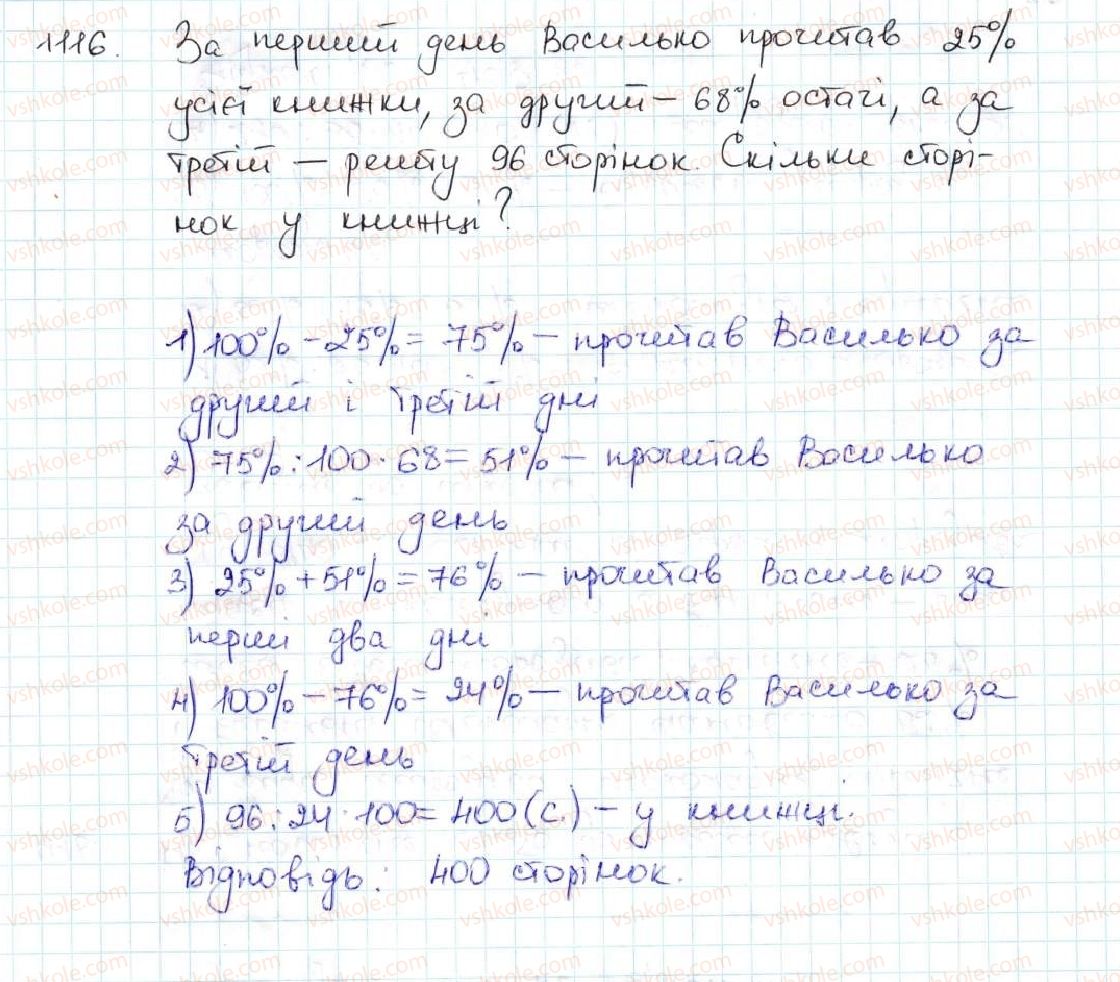 1116. За перший день Василько прочитав 25%
усієї книжки, за другий - 68% остачі, а за
третій - решту 96 сторінок. Скільки сторі-
нок у книжці?
1) 100% - 25% = 75% - прочитав Василько за
другий і третій дні
2) 75% : 100 · 68 = 51% - прочитав Василько
за другий день
3) 25% + 51% = 76% - прочитав Василько за
перші два дні
4) 100% - 76% = 24% - прочитав Василько за
третій день
5) 96 : 24 · 100 = 400 (с.) - у книжці.
Відповідь: 400 сторінок.